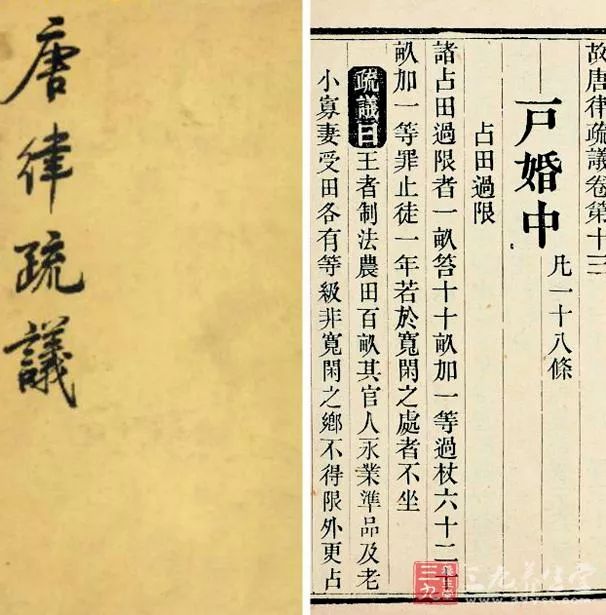 唐律疏議
故唐律疏議卷第十三
戸婚中 凡一十八條
占田過限
諸占田過限者一畝笞十十畝加一等過杖六十二十
畝加一等罪止徒一年若於寬閑之處者不坐
疏議曰王者制法農田百畝其官人永業準品及老
小寡妻受田各有等級非寬閑之鄉不得限外更占
三九养生堂